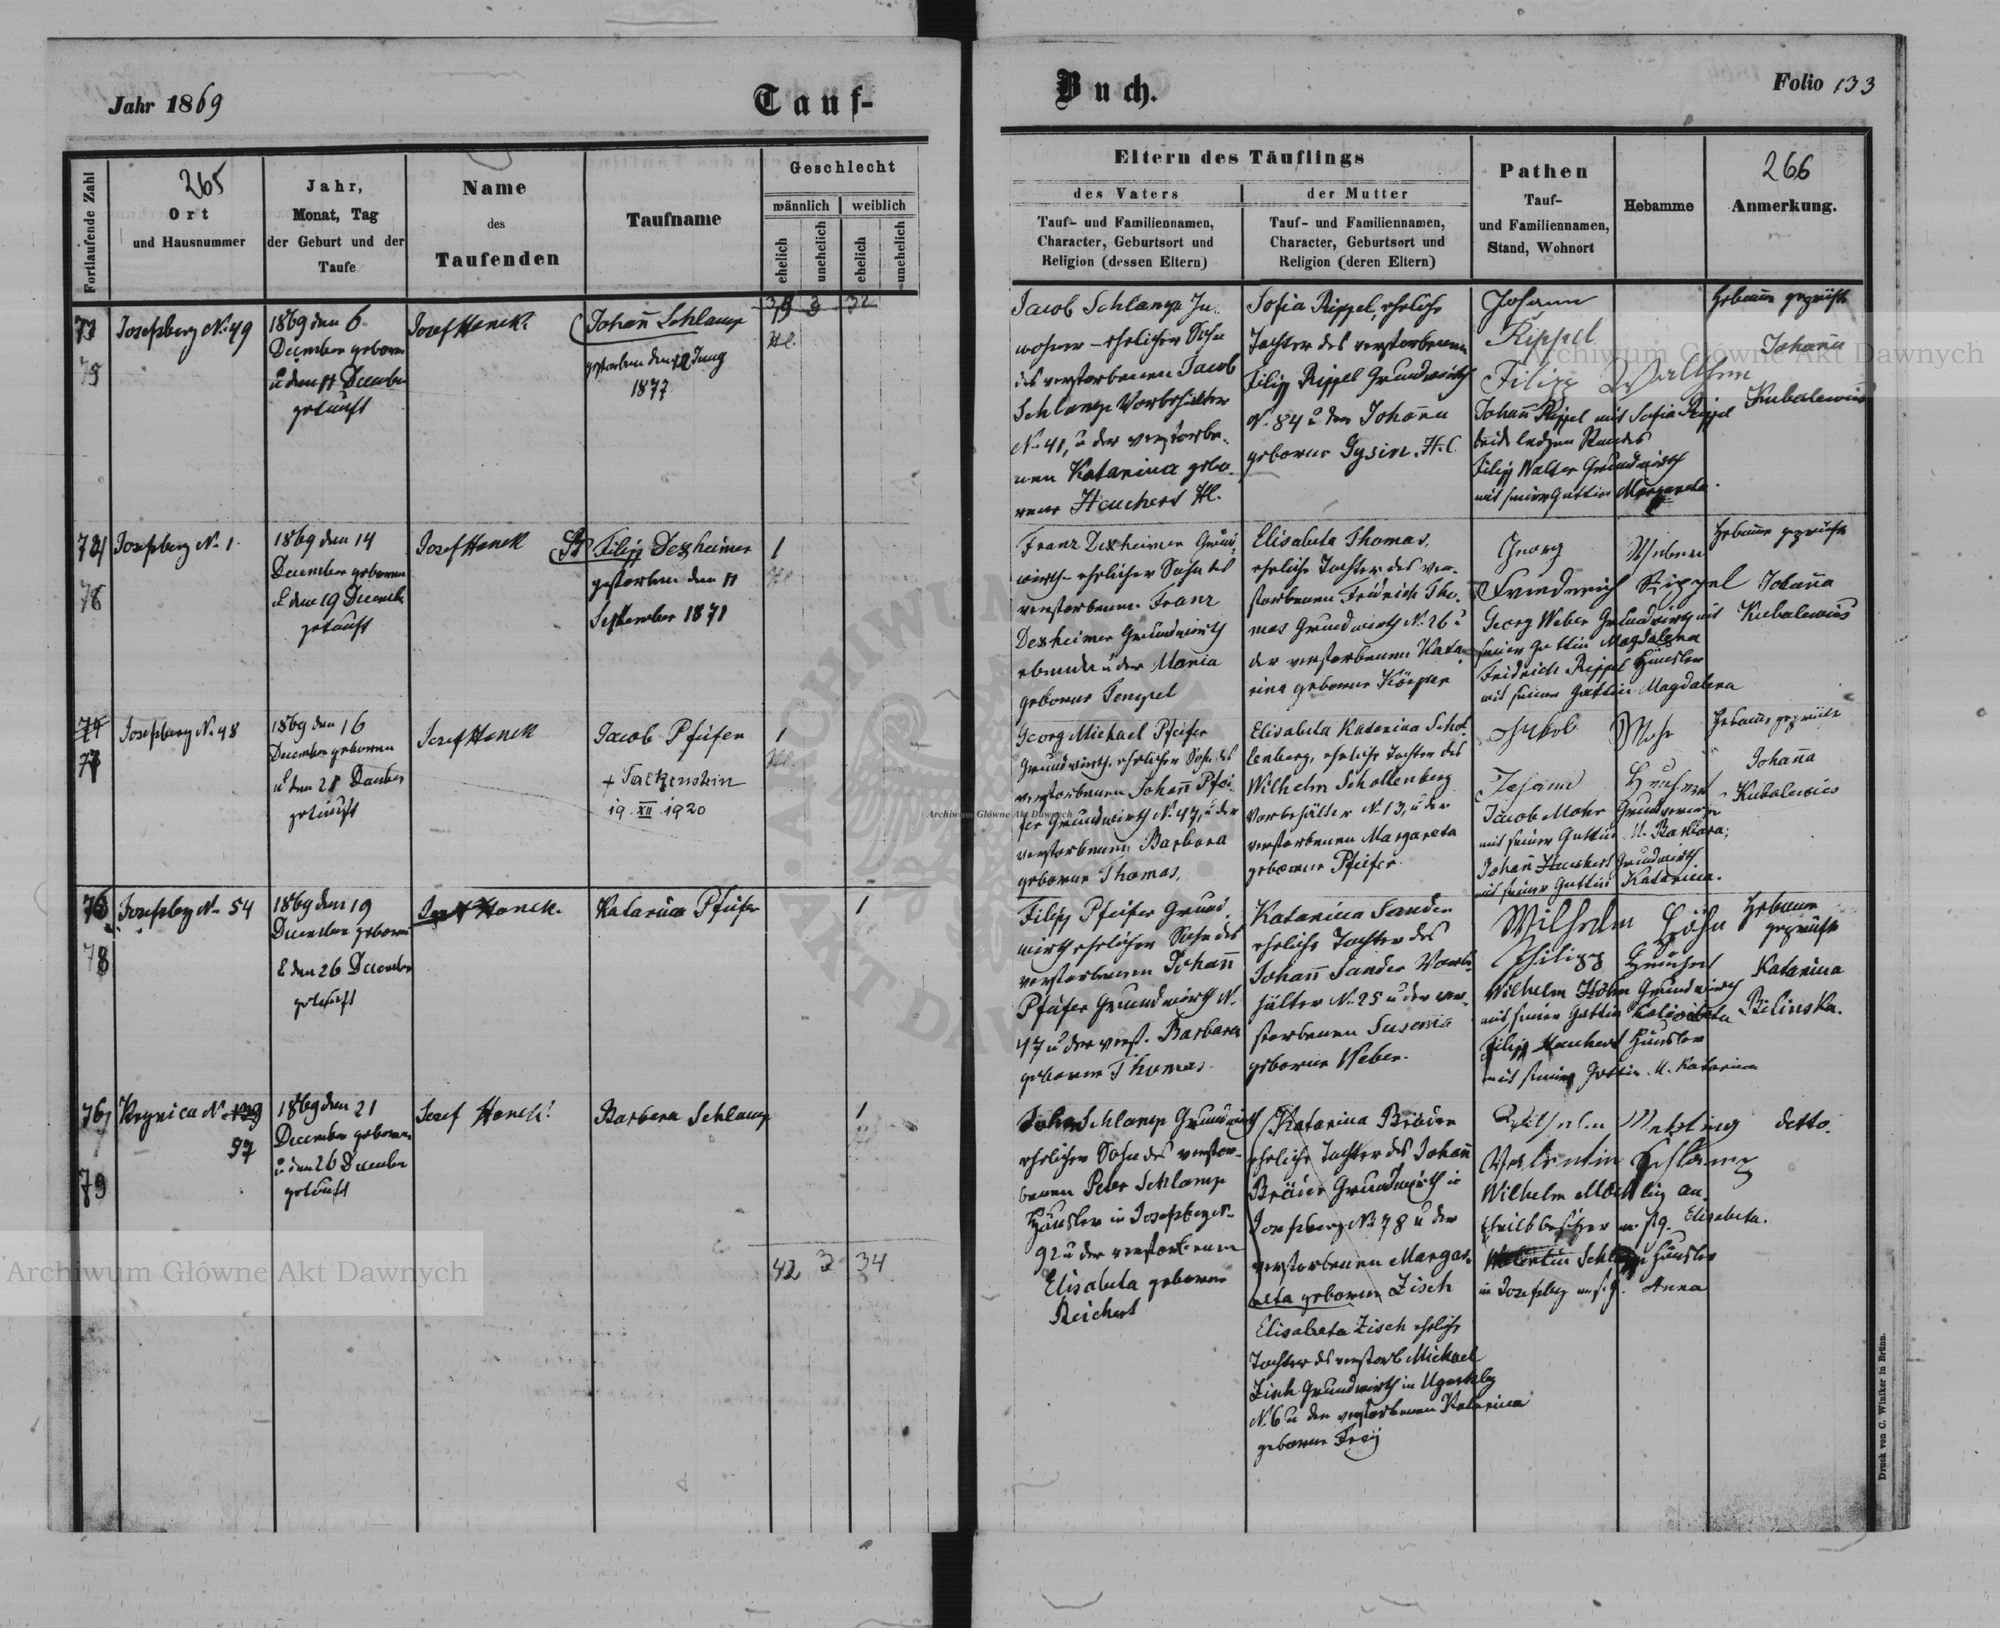 Jahr 1869
Tauf-
Buch.
Folio 133
Fortlaufende Zahl
265
Ort
und Hausnummer
Jahr,
Monat, Tag
der Geburt und der
Taufe
Name
des
Taufenden
Taufname
Geschlecht
männlich
weiblich
ehelich
unehelich
ehelich
unehelich
Eltern des Täuflings
des Vaters
Tauf- und Familiennamen,
Character, Geburtsort und
Religion (dessen Eltern)
der Mutter
Tauf- und Familiennamen,
Character, Geburtsort und
Religion (deren Eltern)
Pathen
Tauf-
und Familiennamen,
Stand, Wohnort
Hebamme
266
Anmerkung.
73
75
Josefsberg No. 49
1869 den 6
December geboren
u den 11 December
getauft
Josef Hanek
Johann Schlamp
gestorben den 12 Juny
1877
39 3 32
Jacob Schlamp In-
wohner - ehelicher Sohn
des verstorbenen Jacob
Schlamp Vorbehälter
No. 41, u der verstorbe-
nen Katarina gebo-
rene Hauchert H.C.
Sofia Rippel, eheliche
Tochter des verstorbenen
Filipp Rippel Grundwirth
No. 84 u der Johanna
geborne Gysin. H.C.
Johann
Rippel
Filipp Walther
Johann Rippel mit Sofia Rippel
beide ledigen Standes
Filipp Walter Grundwirth
mit seiner Gattin Margareta.
Hebamme geprüft
Johanna
Kubalewicz
74
76
Josefsberg No. 1.
1869 den 14
December geboren
u den 19 December
getauft
Josef Hanek
Filipp Dexheimer
gestorben den 11
September 1871
1
Franz Dexheimer Grund-
wirth - ehelicher Sohn des
verstorbenen Franz
Dexheimer Grundwirth
ebenda u der Maria
geborne Tempel
Elisabeta Thomas,
eheliche Tochter des ver-
storbenen Fridrich Tho-
mas Grundwirth No. 26 u
der verstorbenen Kata-
rina geborne Körper
Georg Weber
Friedrich Rippel
Georg Weber Grundwirth mit
seiner Gattin Magdalena
Fridrich Rippel Häusler
mit seiner Gattin Magdalena
Hebamme geprüft
Johanna
Kubalewicz
77
Josefsberg No. 48
1869 den 16
December geboren
u den 21 December
getauft
Josef Hanek
Jacob Pfeifer
+ Falkenstein
19. XII. 1920
1
Georg Michael Pfeifer
Grundwirth, ehelicher Sohn des
verstorbenen Johann Pfei-
fer Grundwirth No. 47, u der
verstorbenen Barbara
geborne Thomas.
Elisabeta Katerina Schol-
lenberg, eheliche Tochter des
Wilhelm Schollenberg
Vorbehälter No. 13, u der
verstorbenen Margareta
geborne Pfeifer.
Jakob Mohr
Johann Hauchert
Jacob Mohr Grundwirth
mit seiner Gattin M. Barbara;
Johann Hauchert Grundwirth
mit seiner Gattin Katarina.
Hebamme geprüft
Johanna
Kubalewicz
78
Josefsberg No. 54
1869 den 19
December geboren
u den 26 December
getauft
Josef Hanek.
Katarina Pfeifer
1
Filipp Pfeifer Grund-
wirth ehelicher Sohn des
verstorbenen Johann
Pfeifer Grundwirth No.
47 u der verst. Barbara
geborne Thomas.
Katarina Sander
eheliche Tochter des
Johann Sander Vorbe-
hälter No. 25 u der ver-
storbenen Susanna
geborne Weber.
Wilhelm Höhn
Philipp Hauchert
Wilhelm Höhn Grundwirth
mit seiner Gattin
Filipp Hauchert Häusler
mit seiner Gattin M. Katarina
Hebamme
geprüft
Katarina
Bilinska.
76
79
Krynica No. 139
97
1869 den 21
December geboren
u den 26 December
getauft
Josef Hanek
Barbara Schlamp
1
42 3 34
Johann Schlamp Grundwirth
ehelicher Sohn des verstor-
benen Peter Schlamp
Häusler in Josefsberg No.
92 u der verstorbenen
Elisabeta geborne
Reichert
Katarina Bräuer
eheliche Tochter des Johann
Bräuer Grundwirth in
Josefsberg No. 78 u der
verstorbenen Marga-
reta geborne Zisch
Elisabeta Zisch eheliche
Tochter des verstorb Michael
Zisch Grundwirth in Ugartsberg
No. 6 u der verstorbenen Katarina
geborne Frey
Wilhelm Metzling
Valentin Schlamp
Wilhelm
Elisabeta.
Valentin Schlamp Häusler
in Josefsberg Anna
detto.
Druck von C. Winiker in Brünn.
Archiwum Główne Akt Dawnych
Archiwum Główne Akt Dawnych
Archiwum Główne Akt Dawnych
ARCHIWUM GŁÓWNE AKT DAWNYCH